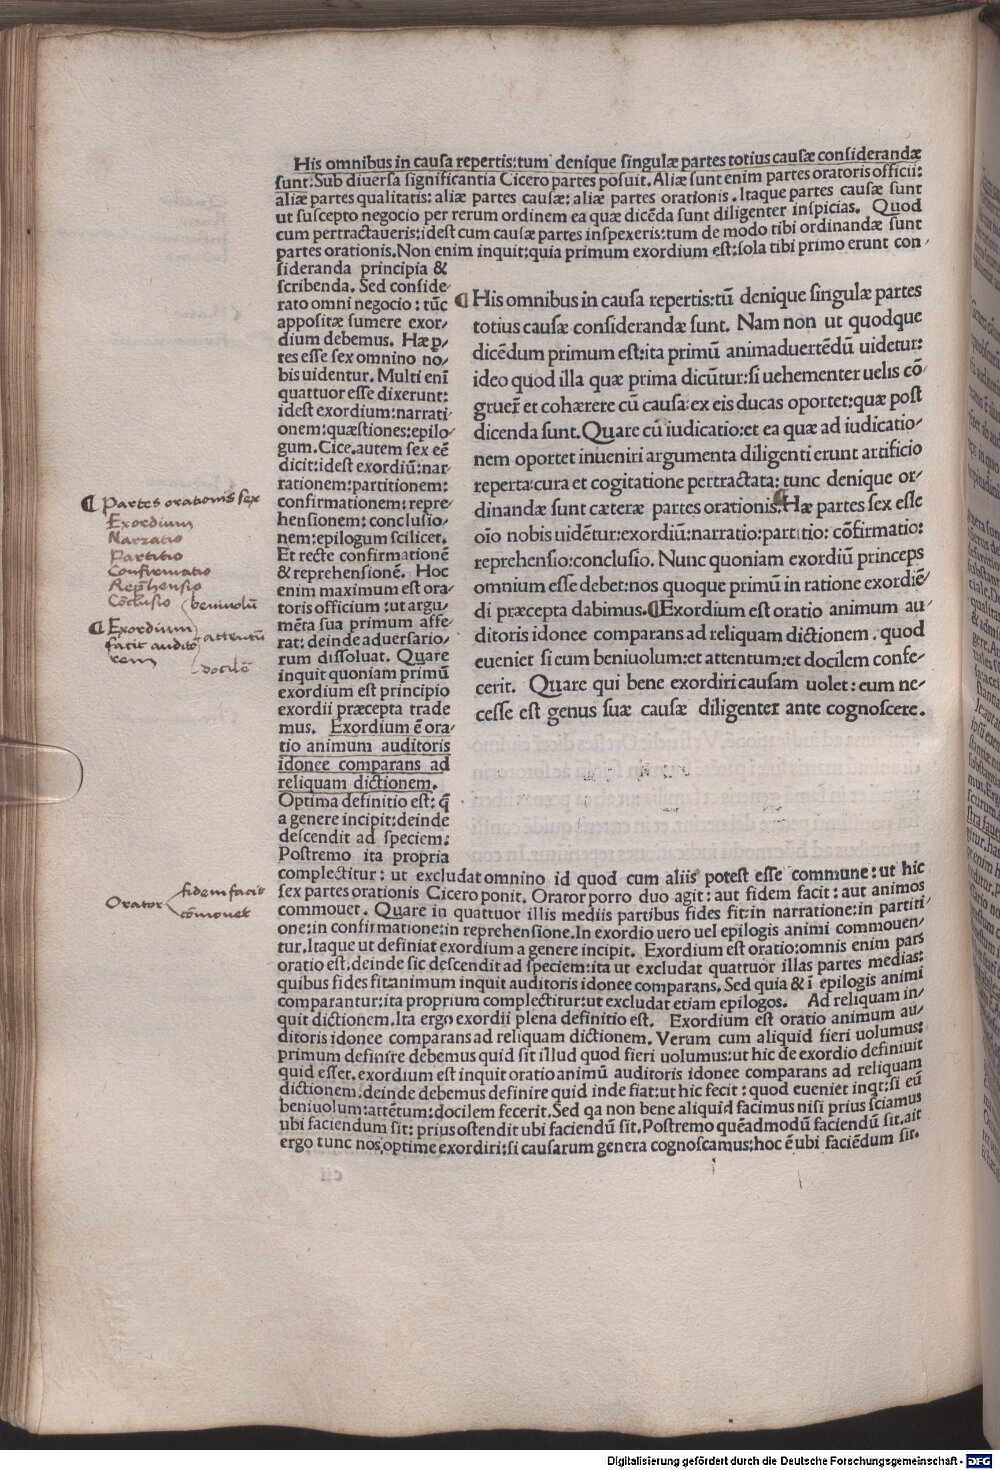 His omnibus in causa repertis:tum denique singulæ partes totius causæ considerandæ
sunt. Sub diuersa significantia Cicero partes posuit. Aliæ sunt enim partes oratoris officii:
aliæ partes qualitatis: aliæ partes causæ: aliæ partes orationis. Itaque partes causæ sunt
ut suscepto negocio per rerum ordinem ea quæ dicēda sunt diligenter inspicias. Quod
cum pertractaueris:idest cum causæ partes inspexeris:tum de modo tibi ordinandæ sunt
partes orationis. Non enim inquit:quia primum exordium est:sola tibi primo erunt con
sideranda principia &
scribenda. Sed conside
rato omni negocio: tūc
appositæ sumere exor
dium debemus. Hæ p
tes esse sex omnino no
bis uidentur. Multi eni
quattuor esse dixerunt:
idest exordium:narrati
onem:quæstiones:epilo
gum. Cice.autem sex eē
dicit:idest exordiū:nar
rationem:partitionem:
confirmationem:repre
hensionem: conclusio
nem:epilogum scilicet.
Et recte confirmationē
& reprehensionē. Hoc
enim maximum est ora
toris officium :ut argu
mēta sua primum affe
rat: deinde aduersario
rum dissoluat. Quare
inquit quoniam primū
exordium est principio
exordii præcepta trade
mus. Exordium ē ora
tio animum auditoris
idonee comparans ad
reliquam dictionem.
Optima definitio est: q̄
a genere incipit:deinde
descendit ad speciem:
Postremo ita propria
¶ His omnibus in causa repertis:tū denique singulæ partes
totius causæ considerandæ sunt. Nam non ut quodque
dicēdum primum est:ita primū animaduertēdū uidetur:
ideo quod illa quæ prima dicūtur:si uehementer uelis cō
gruer̄ et cohærere cū causa:ex eis ducas oportet:quæ post
dicenda sunt. Quare cū iudicatio:et ea quæ ad iudicatio
nem oportet inueniri argumenta diligenti erunt artificio
reperta:cura et cogitatione pertractata: tunc denique or
dinandæ sunt cæteræ partes orationis. ¶ Hæ partes sex esse
oīo nobis uidētur:exordiū:narratio:partitio: cōfirmatio:
reprehensio:conclusio. Nunc quoniam exordiū princeps
omnium esse debet:nos quoque primū in ratione exordiē
di præcepta dabimus. ¶ Exordium est oratio animum au
ditoris idonee comparans ad reliquam dictionem. quod
eueniet si eum beniuolum:et attentum:et docilem confe
cerit. Quare qui bene exordiri causam uolet: eum ne
cesse est genus suæ causæ diligenter ante cognoscere.
complectitur: ut excludat omnino id quod cum aliis potest esse commune: ut hic
sex partes orationis Cicero ponit. Orator porro duo agit: aut fidem facit: aut animos
commouet. Quare in quattuor illis mediis partibus fides fit:in narratione:in partiti
one:in confirmatione:in reprehensione. In exordio uero uel epilogis animi commouen
tur. Itaque ut definiat exordium a genere incipit. Exordium est oratio:omnis enim pars
oratio est.deinde sic descendit ad speciem:ita ut excludat quattuor illas partes medias:
quibus fides fit:animum inquit auditoris idonee comparans. Sed quia & ī epilogis animi
comparantur:ita proprium complectitur:ut excludat etiam epilogos. Ad reliquam in
quit dictionem. Ita ergo exordii plena definitio est. Exordium est oratio animum au
ditoris idonee comparans ad reliquam dictionem. Verum cum aliquid fieri uolumus:
primum definire debemus quid sit illud quod fieri uolumus:ut hic de exordio definiuit
quid esset. exordium est inquit oratio animū auditoris idonee comparans ad reliquam
dictionem: deinde debemus definire quid inde fiat:ut hic fecit : quod eueniet inqt:si eū
beniuolum:attētum:docilem fecerit. Sed qa non bene aliquid facimus nisi prius sciamus
ubi faciendum sit: prius ostendit ubi faciendū sit. Postremo quēadmodū faciendū sit.ait
ergo tunc nos optime exordiri:si causarum genera cognoscamus:hoc ē ubi faciēdum sit.
¶ Partes orationis sex
Exordium
Narratio
Partitio
Confirmatio
Rep̄hensio
Cōclusio
¶ Exordium
facit audito
rem
beniuolū
attentū
docilē
Orator
fidem facit
cōmouet
Digitalisierung gefördert durch die Deutsche Forschungsgemeinschaft - DFG